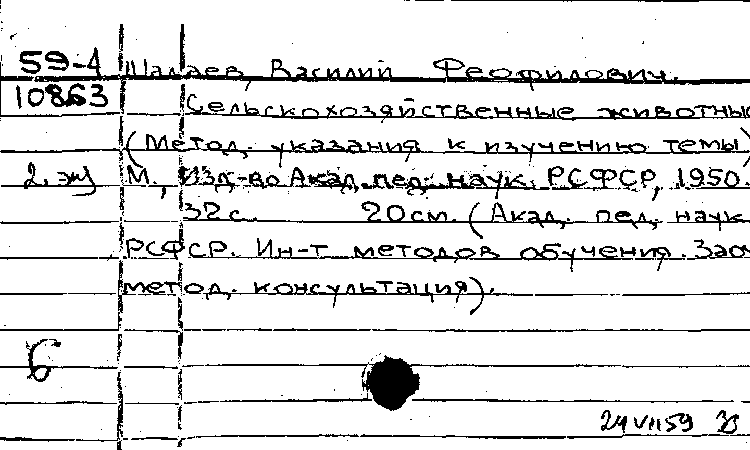 59-4 Шалаев, Василий Феофилович.
10863 Сельскохозяйственные животные
(Метод. указания к изучению темы)
2 экз М., Изд-во Акад. пед. наук РСФСР, 1950.
32 с. 20 см. (Акад. пед. наук
РСФСР. Ин-т методов обучения. Заоч
метод. консультация).
6
24 VII 59